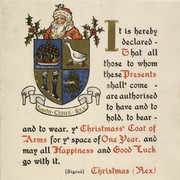 It is hereby
declared—
That all
those to whom
these Presents
shall come—
are authorised
to have and to
hold, to bear—
Santa · Claus · Rex
and to wear, yᵉ Christmass Coat of
Arms for yᵉ space of One Year, and
may all Happiness and Good Luck
go with it.
(Signed) Christmas (Rex)